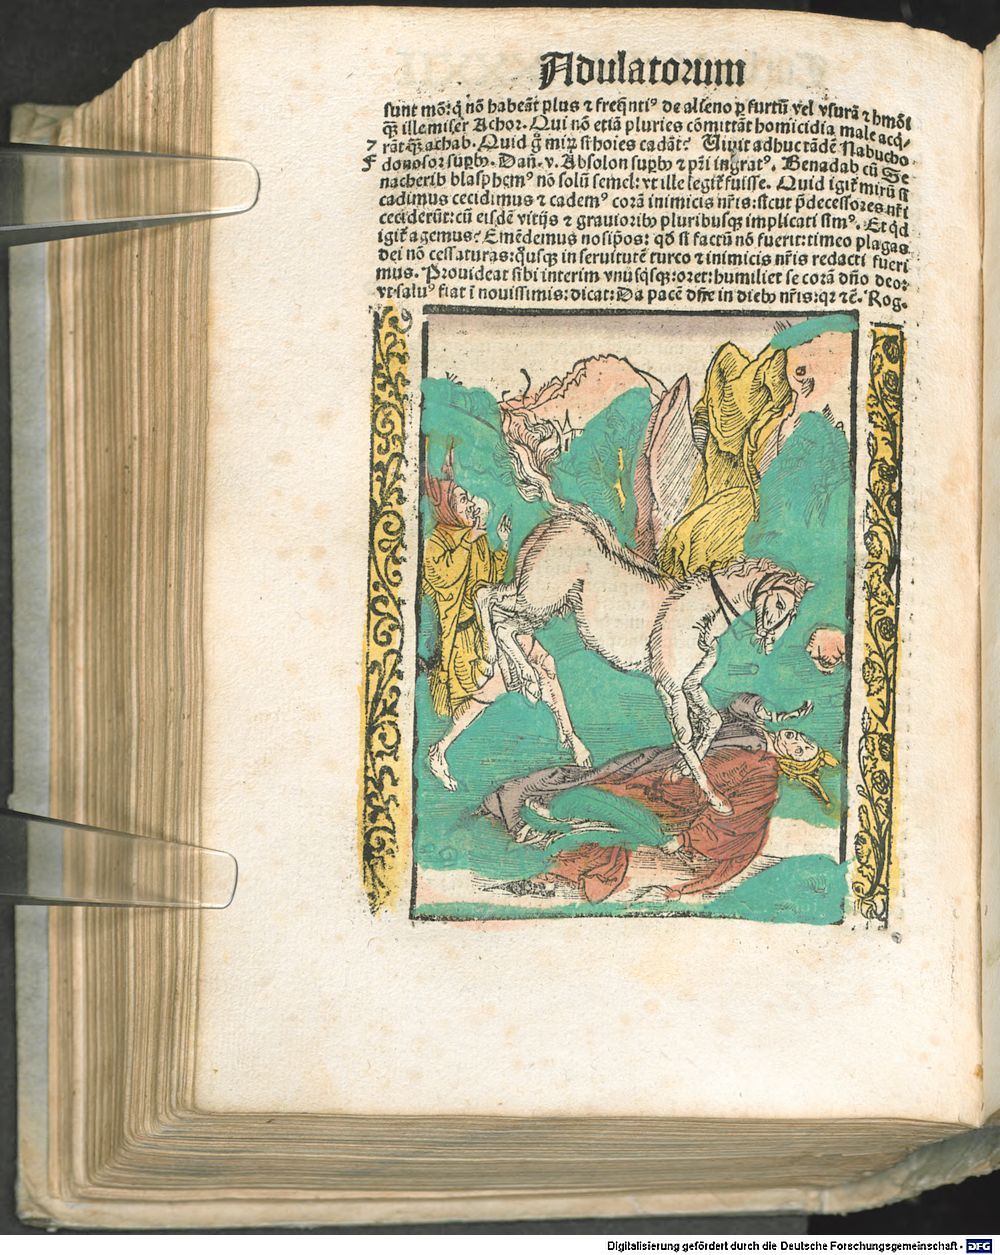 Adulatorum
sunt mo: q̃ nõ habeãt plus ⁊ freq̃ntiꝰ de alieno ꝑ furtũ vel vsurã ⁊ hmõi
qꝫ ille miser Achor. Qui nõ etiã pluries cõmittãt homicidia male acq̃/
7 rãt qꝫ achab. Quid g̊ miꝝ si hoĩes cadãt? Viuit adhuc tãdẽ Nabucho
F donosor suꝑbꝰ. Dañ. v. Absolon suꝑbꝰ ⁊ pr̃i ingratꝰ. Benadab cũ Se
nacherib blasphemꝰ nõ solũ semel: vt ille legit̃ fuisse. Quid igit̃ mirũ si
cadimus cecidimus ⁊ cademꝰ corã inimicis nr̃is: sicut p̃decessores nr̃i
ceciderũt: cũ eisdẽ vitijs ⁊ grauioribꝰ pluribusqꝫ implicati simꝰ. Et qd
igit̃ agemus? Emẽdemus nosip̃os: qð si factũ nõ fuerit: timeo plagas
dei nõ cessaturas: q̊usqꝫ in seruitutẽ turco ⁊ inimicis nr̃is redacti fueri
mus. Prouideat sibi interim vnusq̃sqꝫ: oret: humiliet se corã dño deo:
vt saluꝰ fiat ĩ nouissimis: dicat: Da pacẽ dñe in diebꝰ nr̃is: qꝛ ⁊c̃. Rog.
Digitalisierung gefördert durch die Deutsche Forschungsgemeinschaft - DFG